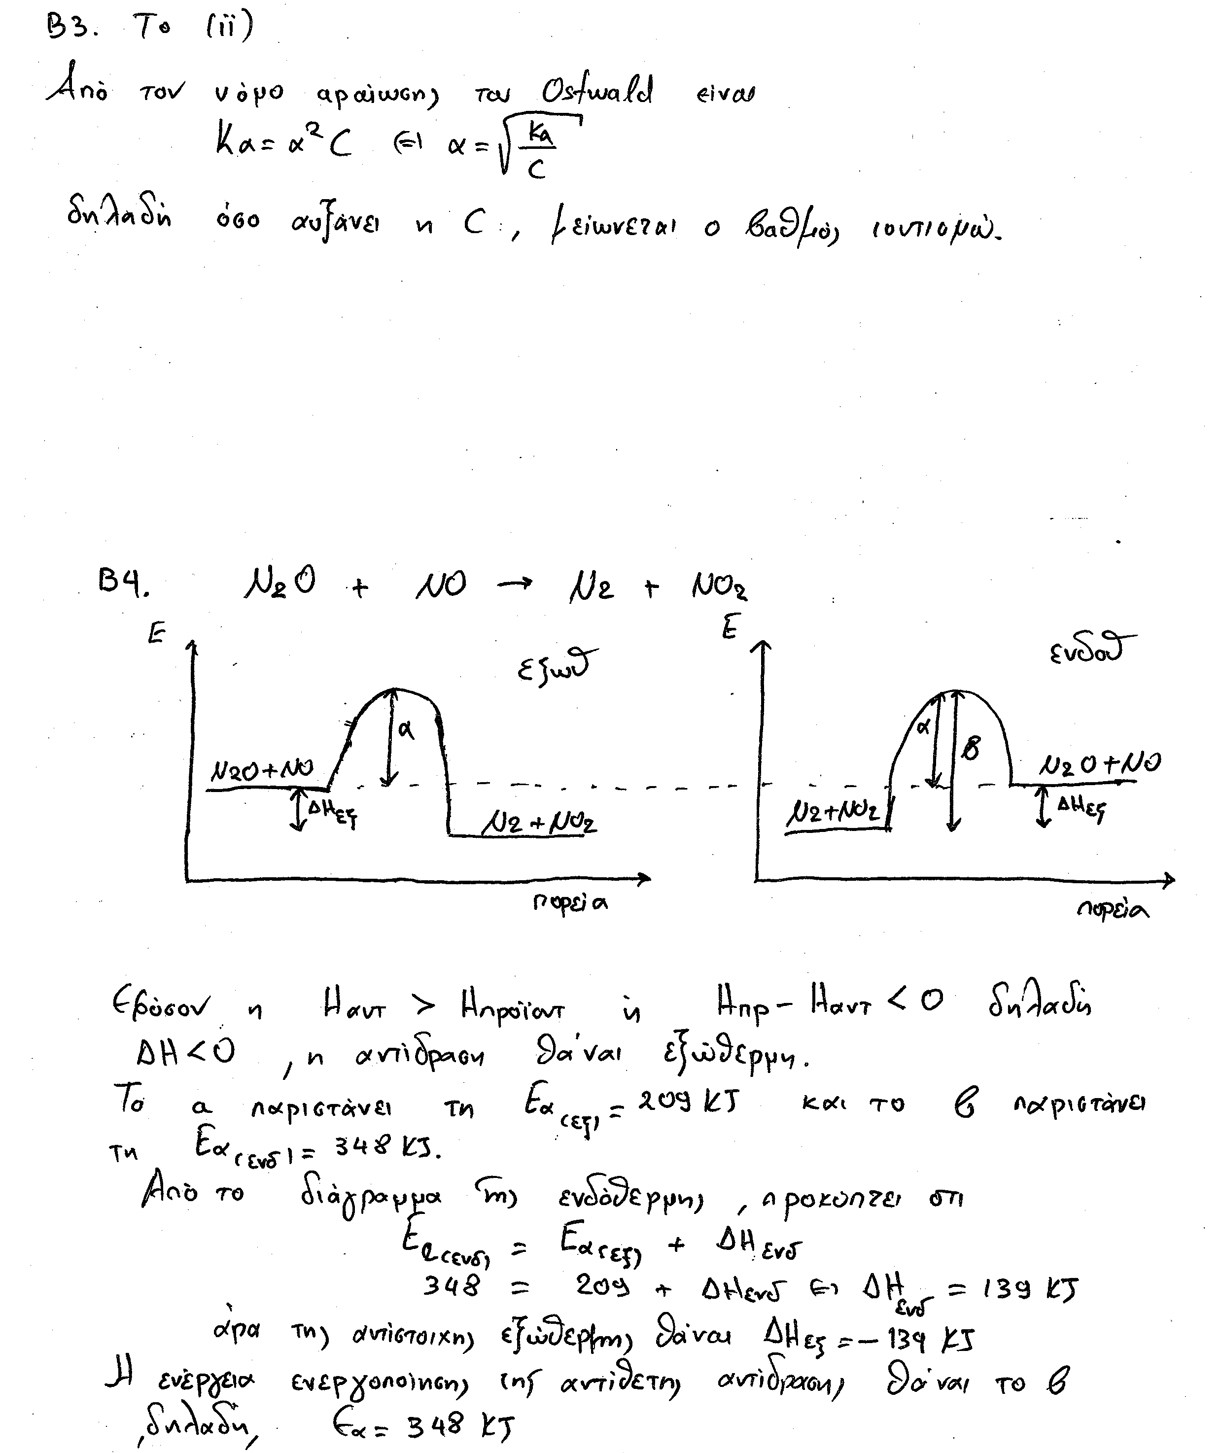 Β3. Το (ii)
Από τον νόμο αραίωσης του Ostwald είναι
Ka = α² C ⇔ α = √(Ka/C)
δηλαδή όσο αυξάνει η C, μειώνεται ο βαθμός ιοντισμού.
Β4. N2O + NO → N2 + NO2
E εξωθ
α
N2O+NO
ΔHεξ
N2+NO2
πορεία
E ενδοθ
α β
N2O+NO
N2+NO2
ΔHεξ
πορεία
Εφόσον η Hαντ > Hπροϊοντ ή Hπρ - Hαντ < 0 δηλαδή
ΔH<0, η αντίδραση θά'ναι εξώθερμη.
Το α παριστάνει τη Eα(εξ) = 209 KJ και το β παριστάνει
τη Eα(ενδ) = 348 KJ.
Από το διάγραμμα της ενδόθερμης, προκύπτει οτι
Eα(ενδ) = Eα(εξ) + ΔHενδ
348 = 209 + ΔHενδ ⇔ ΔHενδ = 139 KJ
άρα της αντίστοιχης εξώθερμης θά'ναι ΔHεξ = -139 KJ
Η ενέργεια ενεργοποίησης της αντίθετης αντίδρασης θά'ναι το β
δηλαδή, Eα = 348 KJ